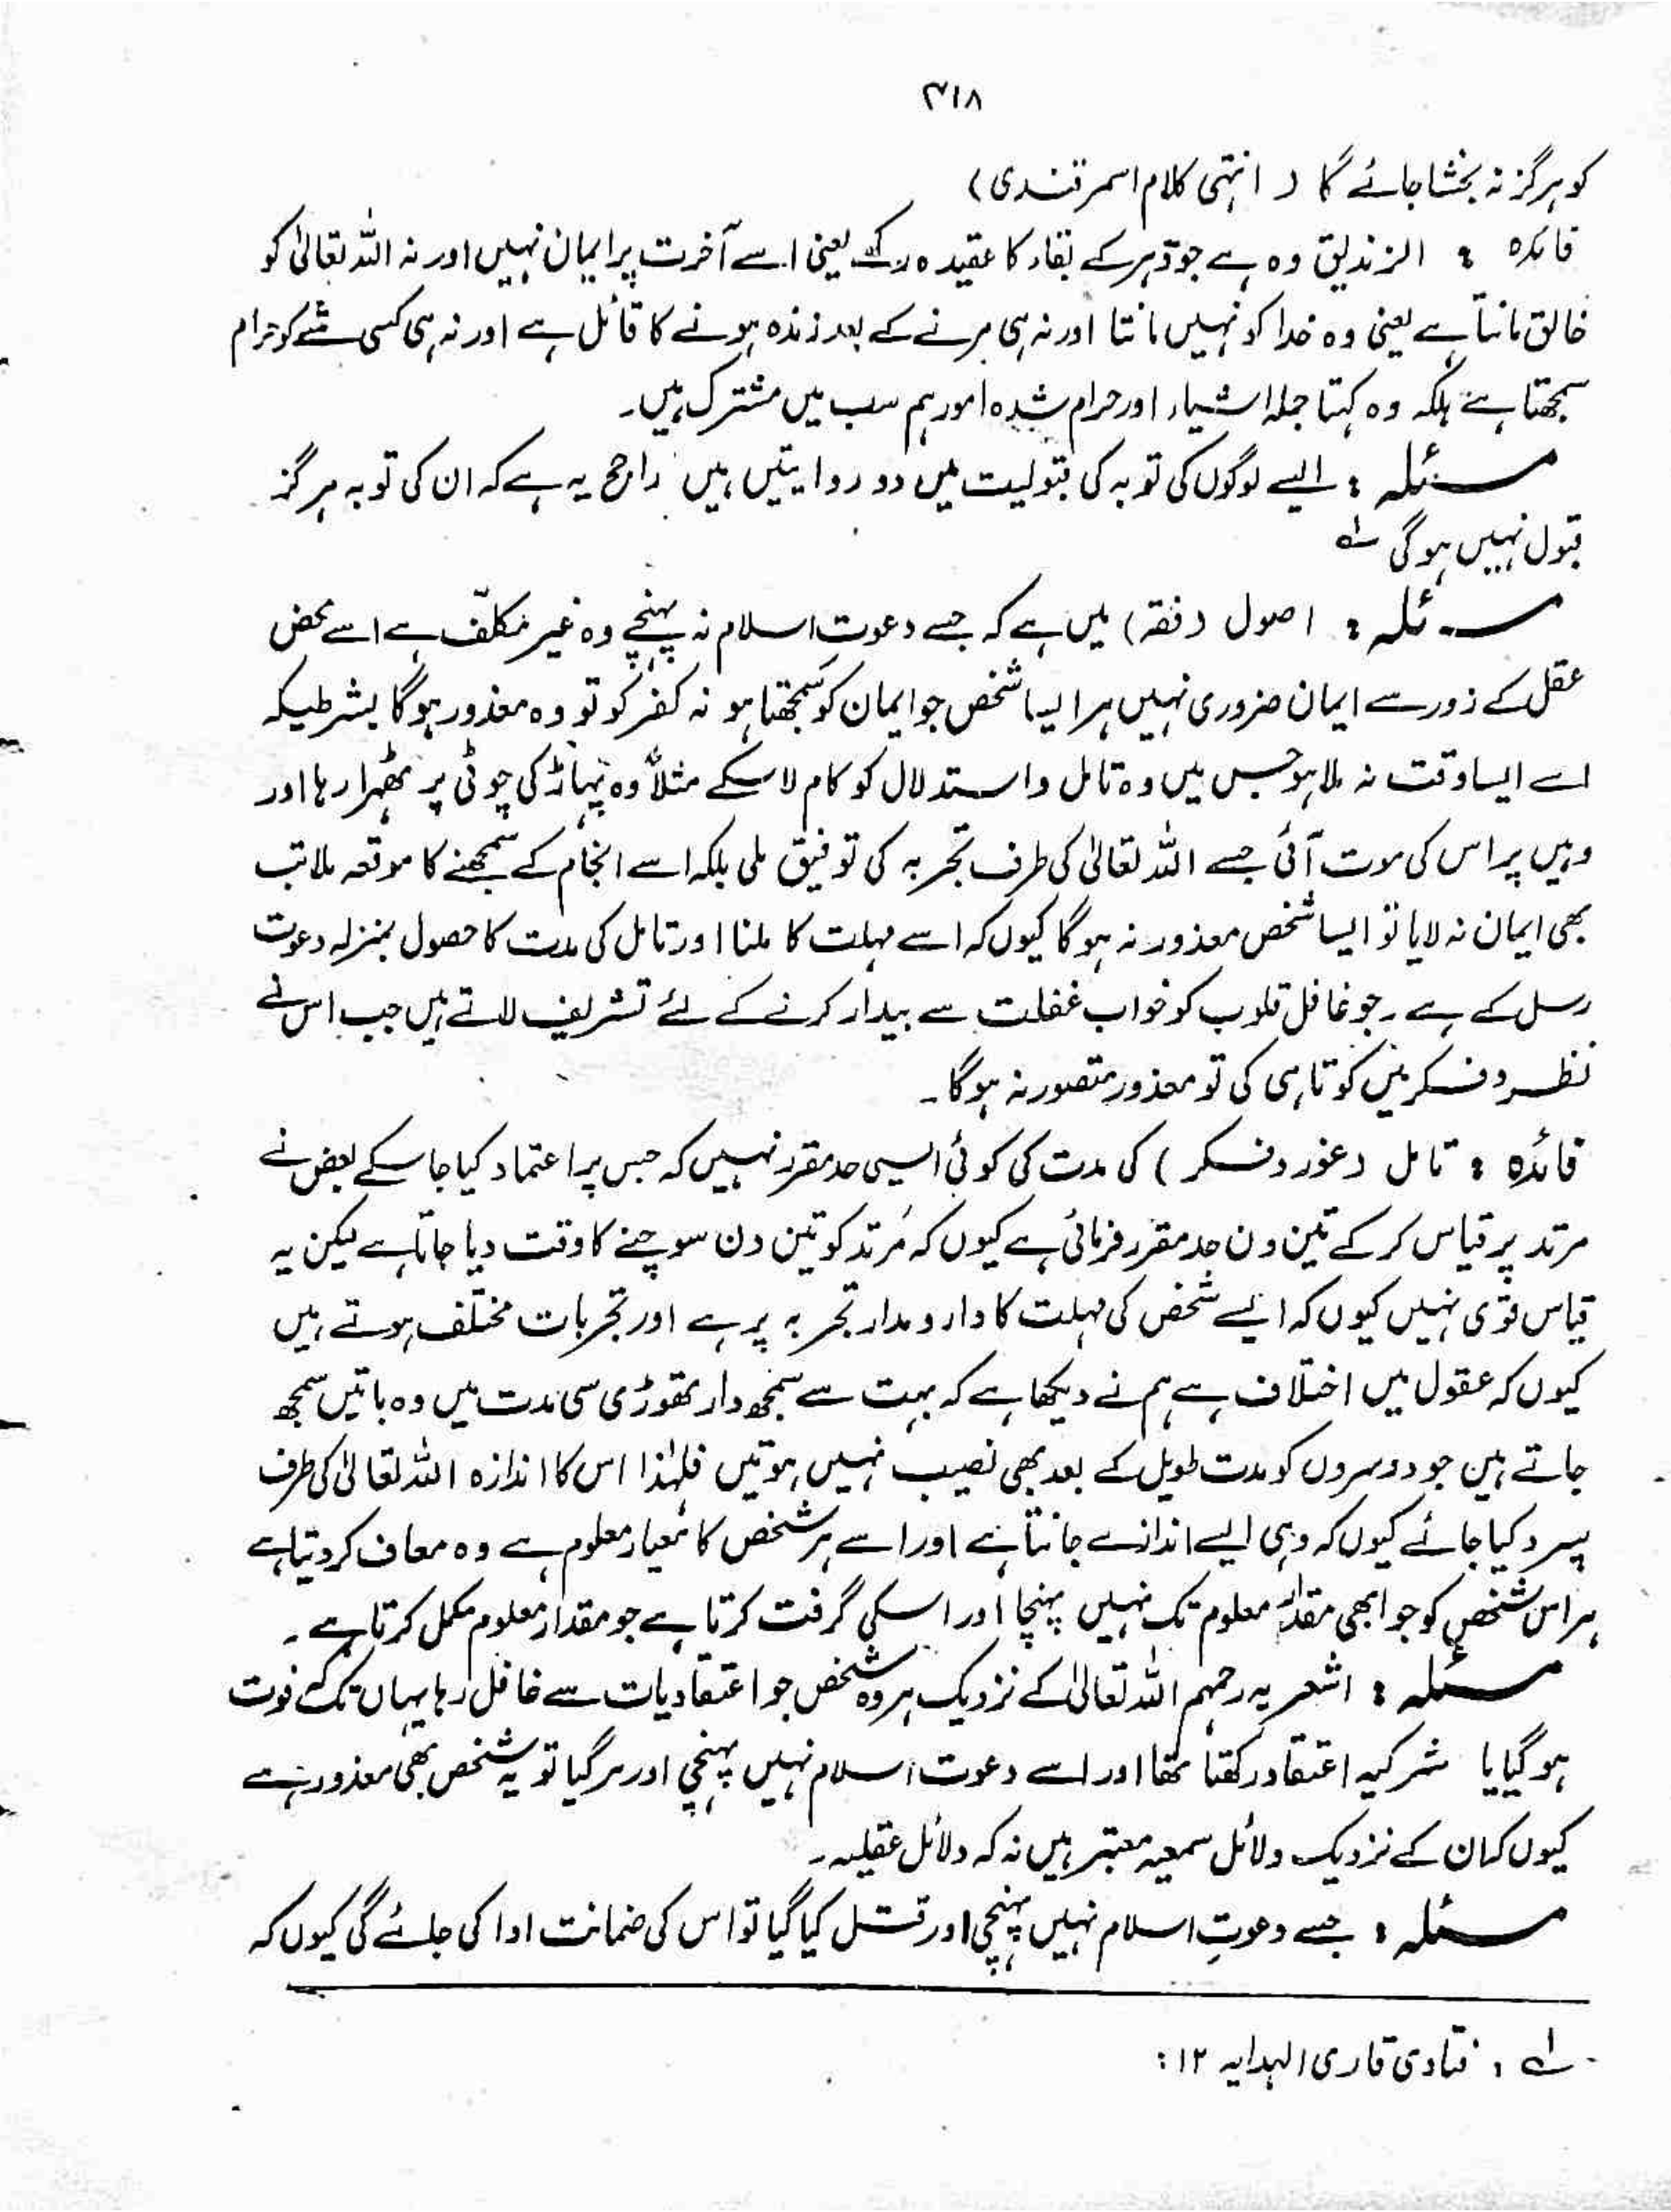 ۳۱۸
کو ہرگز نہ بخشا جائے گا ( انتہی کلام اسمرقندی )
فائدہ : الزندیق وہ ہے جو دَہر کے بقاء کا عقیدہ رکھے یعنی اسے آخرت پر ایمان نہیں اور نہ اللہ تعالیٰ کو
خالق مانتا ہے یعنی وہ خدا کو نہیں مانتا اور نہ ہی مرنے کے بعد زندہ ہونے کا قائل ہے اور نہ ہی کسی شے کو حرام
سمجھتا ہے بلکہ وہ کہتا جملہ اشیاء اور حرام شدہ امور ہم سب میں مشترک ہیں۔
مسئلہ : ایسے لوگوں کی توبہ کی قبولیت میں دو روایتیں ہیں راجح یہ ہے کہ ان کی توبہ ہرگز
قبول نہیں ہوگی لے
مسئلہ : اصول (فقہ) میں ہے کہ جسے دعوت اسلام نہ پہنچے وہ غیر مکلّف ہے اسے محض
عقل کے زور سے ایمان ضروری نہیں ہر ایسا شخص جو ایمان کو سمجھتا ہو نہ کفر کو تو وہ معذور ہوگا بشرطیکہ
اسے ایسا وقت نہ ملا ہو جس میں وہ تامل و استدلال کو کام لا سکے مثلاً وہ پہاڑ کی چوٹی پر ٹھہرا رہا اور
وہیں پر اس کی موت آئی جسے اللہ تعالیٰ کی طرف تجربہ کی توفیق ملی بلکہ اسے انجام کے سمجھنے کا موقعہ ملا تب
بھی ایمان نہ لایا تو ایسا شخص معذور نہ ہوگا کیوں کہ اسے مہلت کا ملنا اور تامل کی مدت کا حصول بمنزلہ دعوت
رسل کے ہے۔ جو غافل قلوب کو خواب غفلت سے بیدار کرنے کے لئے تشریف لاتے ہیں جب اس نے
نظر و فکر میں کوتاہی کی تو معذور متصور نہ ہوگا۔
فائدہ : تامل (غور و فکر ) کی مدت کی کوئی ایسی حد مقرر نہیں کہ جس پر اعتماد کیا جا سکے بعض نے
مرتد پر قیاس کر کے تین دن حد مقرر فرمائی ہے کیوں کہ مُرتد کو تین دن سوچنے کا وقت دیا جاتا ہے لیکن یہ
قیاس قوی نہیں کیوں کہ ایسے شخص کی مہلت کا دارومدار تجربہ پر ہے اور تجربات مختلف ہوتے ہیں
کیوں کہ عقول میں اختلاف ہے ہم نے دیکھا ہے کہ بہت سے سمجھ دار تھوڑی سی مدت میں وہ باتیں سمجھ
جاتے ہیں جو دوسروں کو مدت طویل کے بعد بھی نصیب نہیں ہوتیں فلہٰذا اس کا اندازہ اللہ تعالیٰ کی طرف
سپرد کیا جائے کیوں کہ وہی ایسے اندازے جانتا ہے اور اسے ہر شخص کا معیار معلوم ہے وہ معاف کر دیتا ہے
ہر اس شخص کو جو ابھی مقدار معلوم تک نہیں پہنچا اور اسکی گرفت کرتا ہے جو مقدار معلوم مکمل کرتا ہے۔
مسئلہ : اشعریہ رحمہم اللہ تعالیٰ کے نزدیک ہر وہ شخص جو اعتقادیات سے غافل رہا یہاں تک کہ فوت
ہو گیا یا شرکیہ اعتقاد رکھتا تھا اور اسے دعوت اسلام نہیں پہنچی اور مر گیا تو یہ شخص بھی معذور ہے
کیوں کہ ان کے نزدیک دلائل سمعیہ معتبر ہیں نہ کہ دلائل عقلیہ۔
مسئلہ : جسے دعوتِ اسلام نہیں پہنچی اور قتل کیا گیا تو اس کی ضمانت ادا کی جائے گی کیوں کہ
لے ، فتاوی قاری الہدایہ ۱۲ :